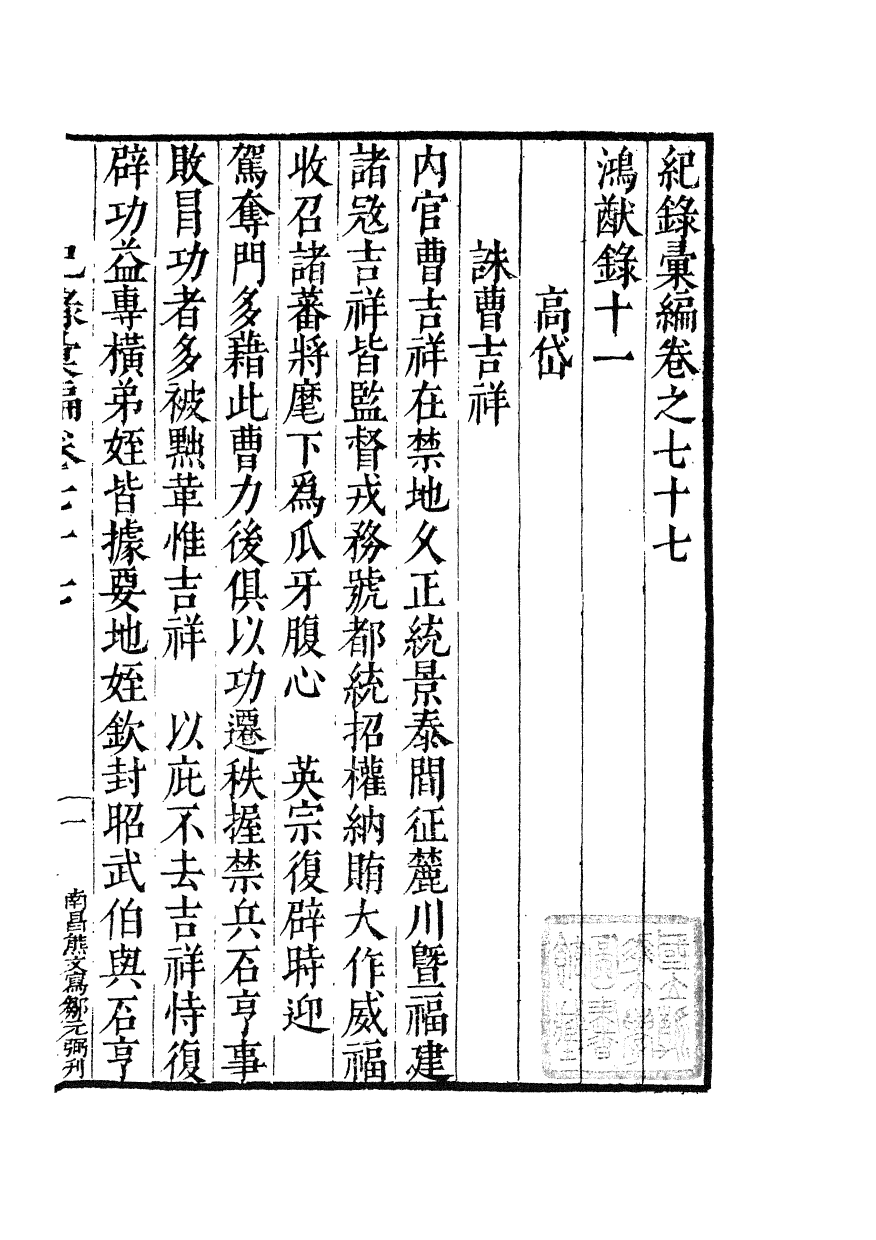 紀錄彙編卷之七十七
鴻猷錄十一
高岱
誅曹吉祥
內官曹吉祥在禁地久正統景泰間征麓川暨福建
諸𡨥吉祥皆監督戎務號都統招權納賄大作威福
收召諸蕃將麾下爲瓜牙腹心　英宗復辟時迎
駕奪門多藉此曹力後俱以功遷秩握禁兵石亨事
敗冐功者多被黜革惟吉祥　以庇不去吉祥恃復
辟功益專橫弟姪皆據要地姪欽封昭武伯與石亨
紀錄彙編卷七十七
一
南昌熊文寫鄒元弼刊